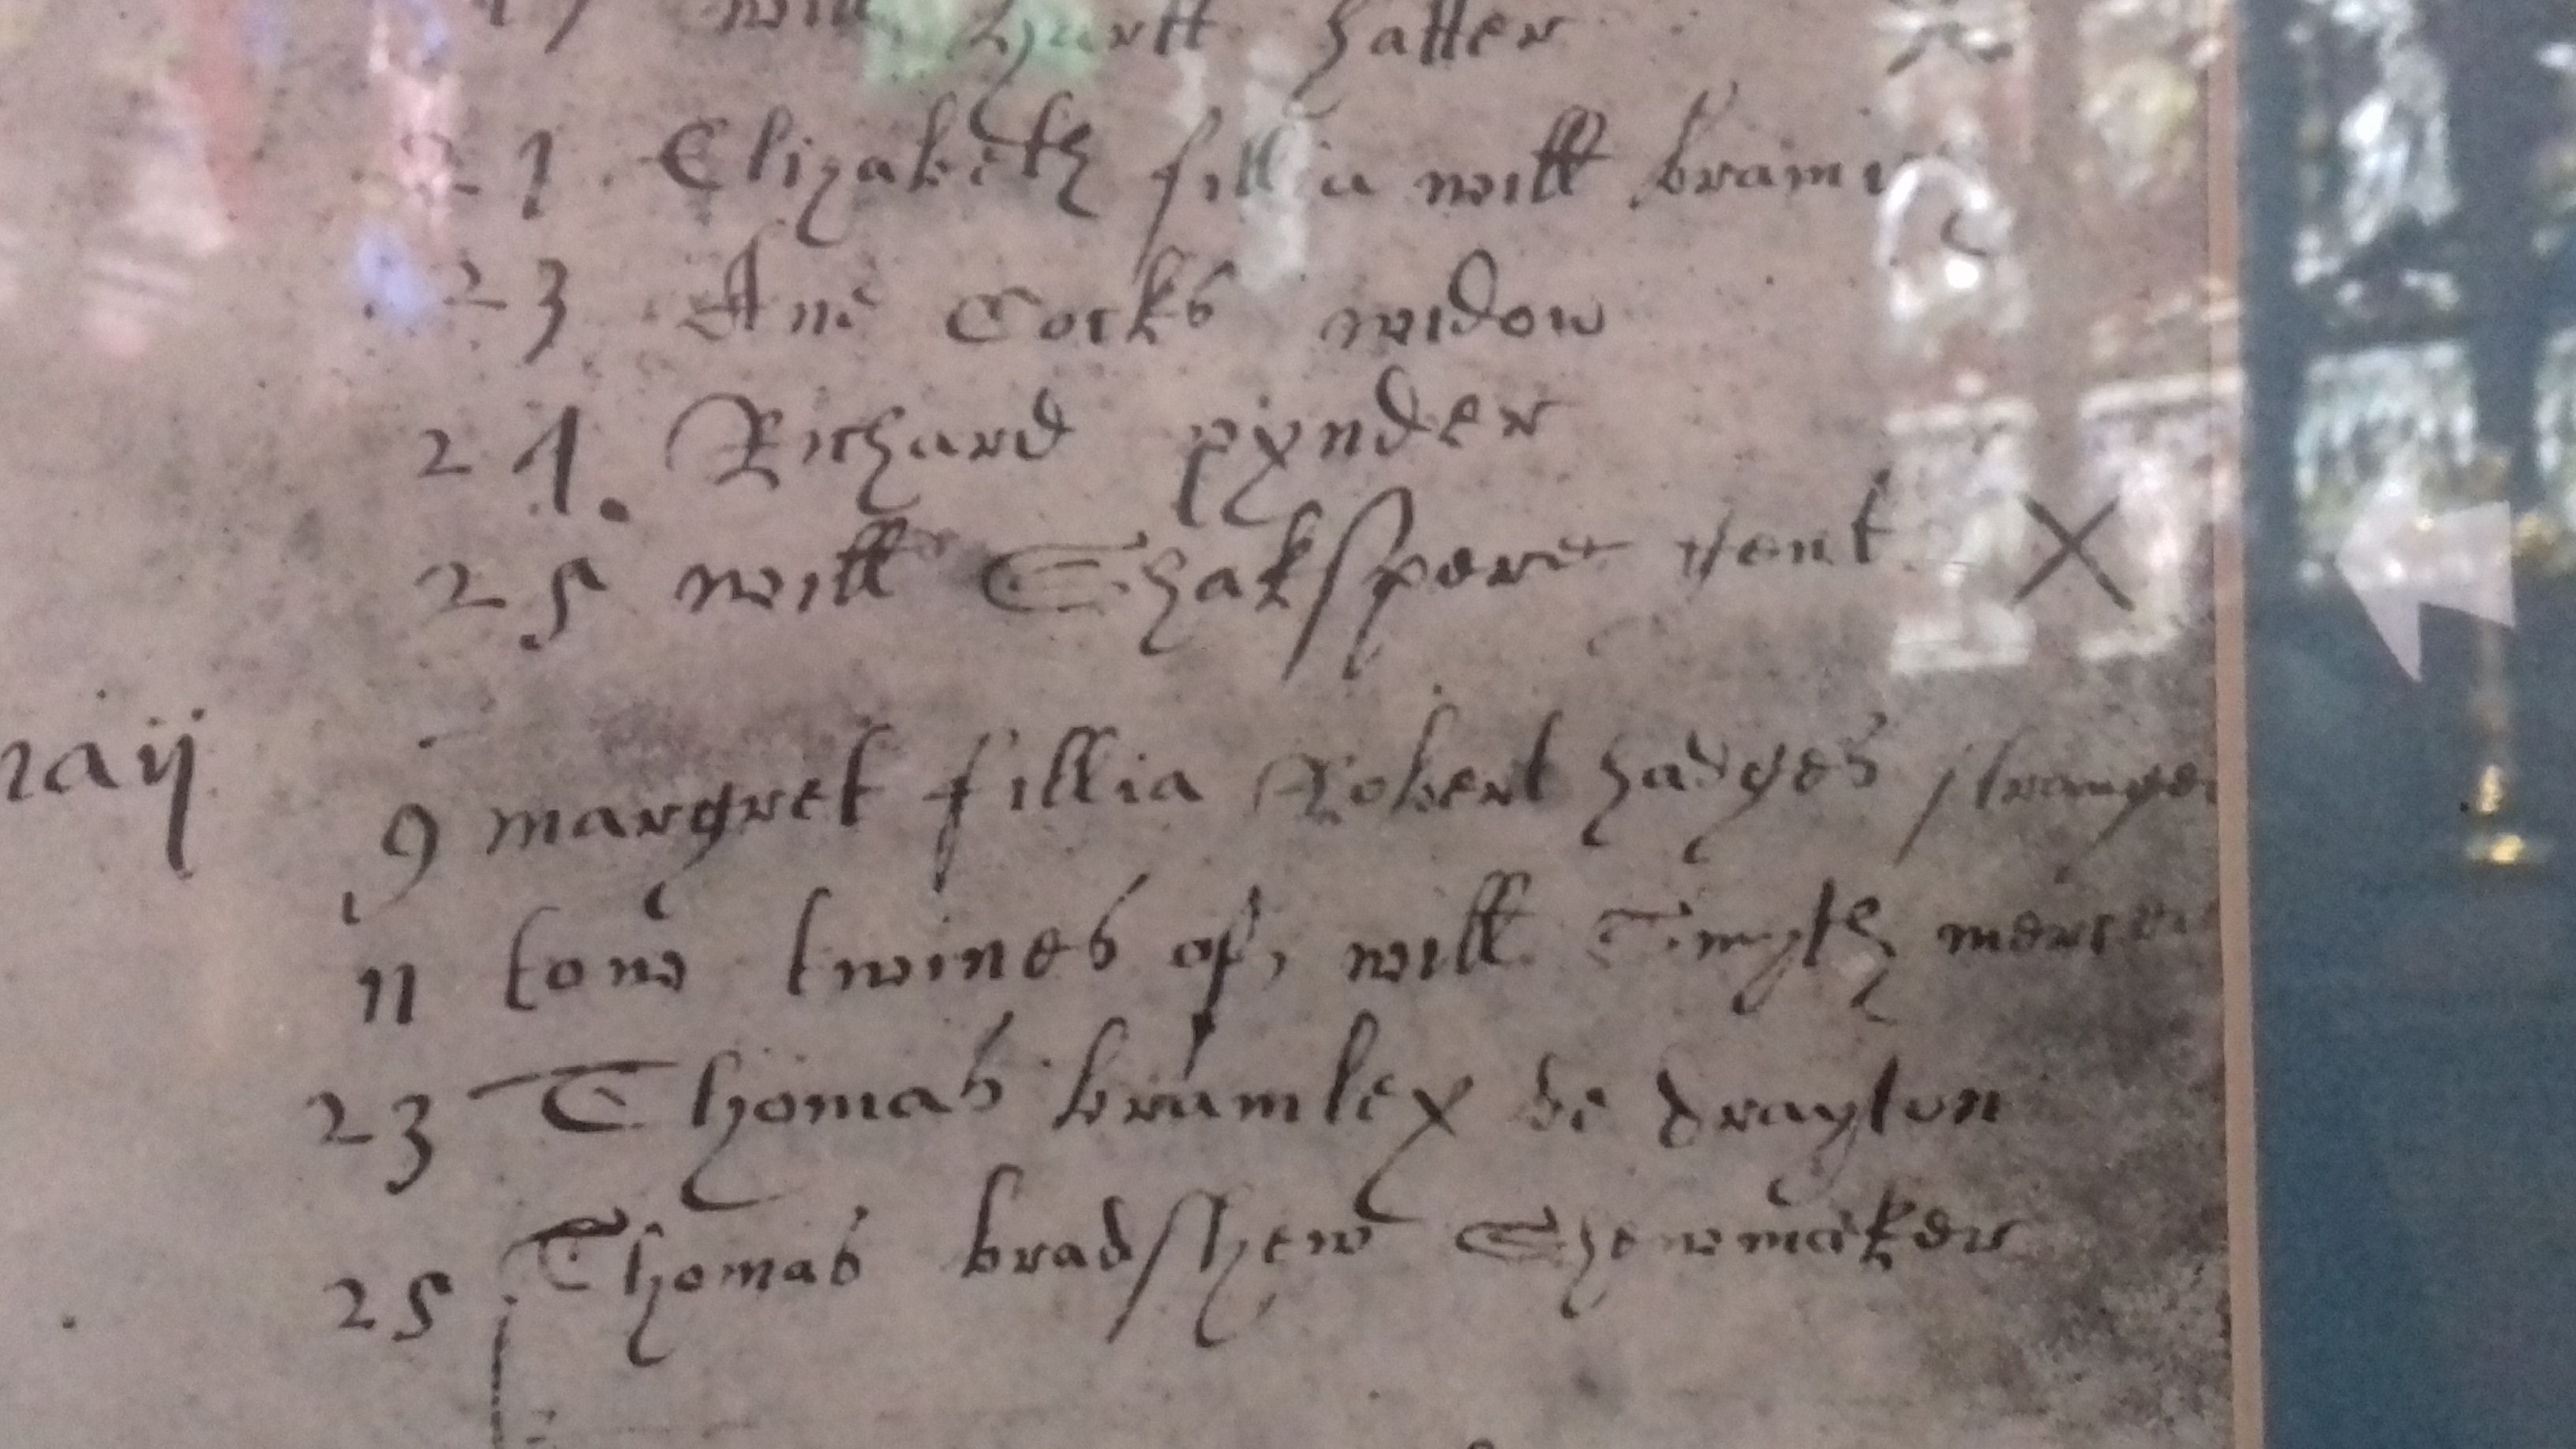 17 will hartt hatter
21 Elizabeth fillia will
23 Ane Cocks widow
24 Richard pynder
25 will Shakspere gent X
maij 9 margret fillia Robert hadges stranger
11 tow twines of, will Smyth mercer
23 Thomas bramley de drayton
25 Thomas bradshew Shewmaker